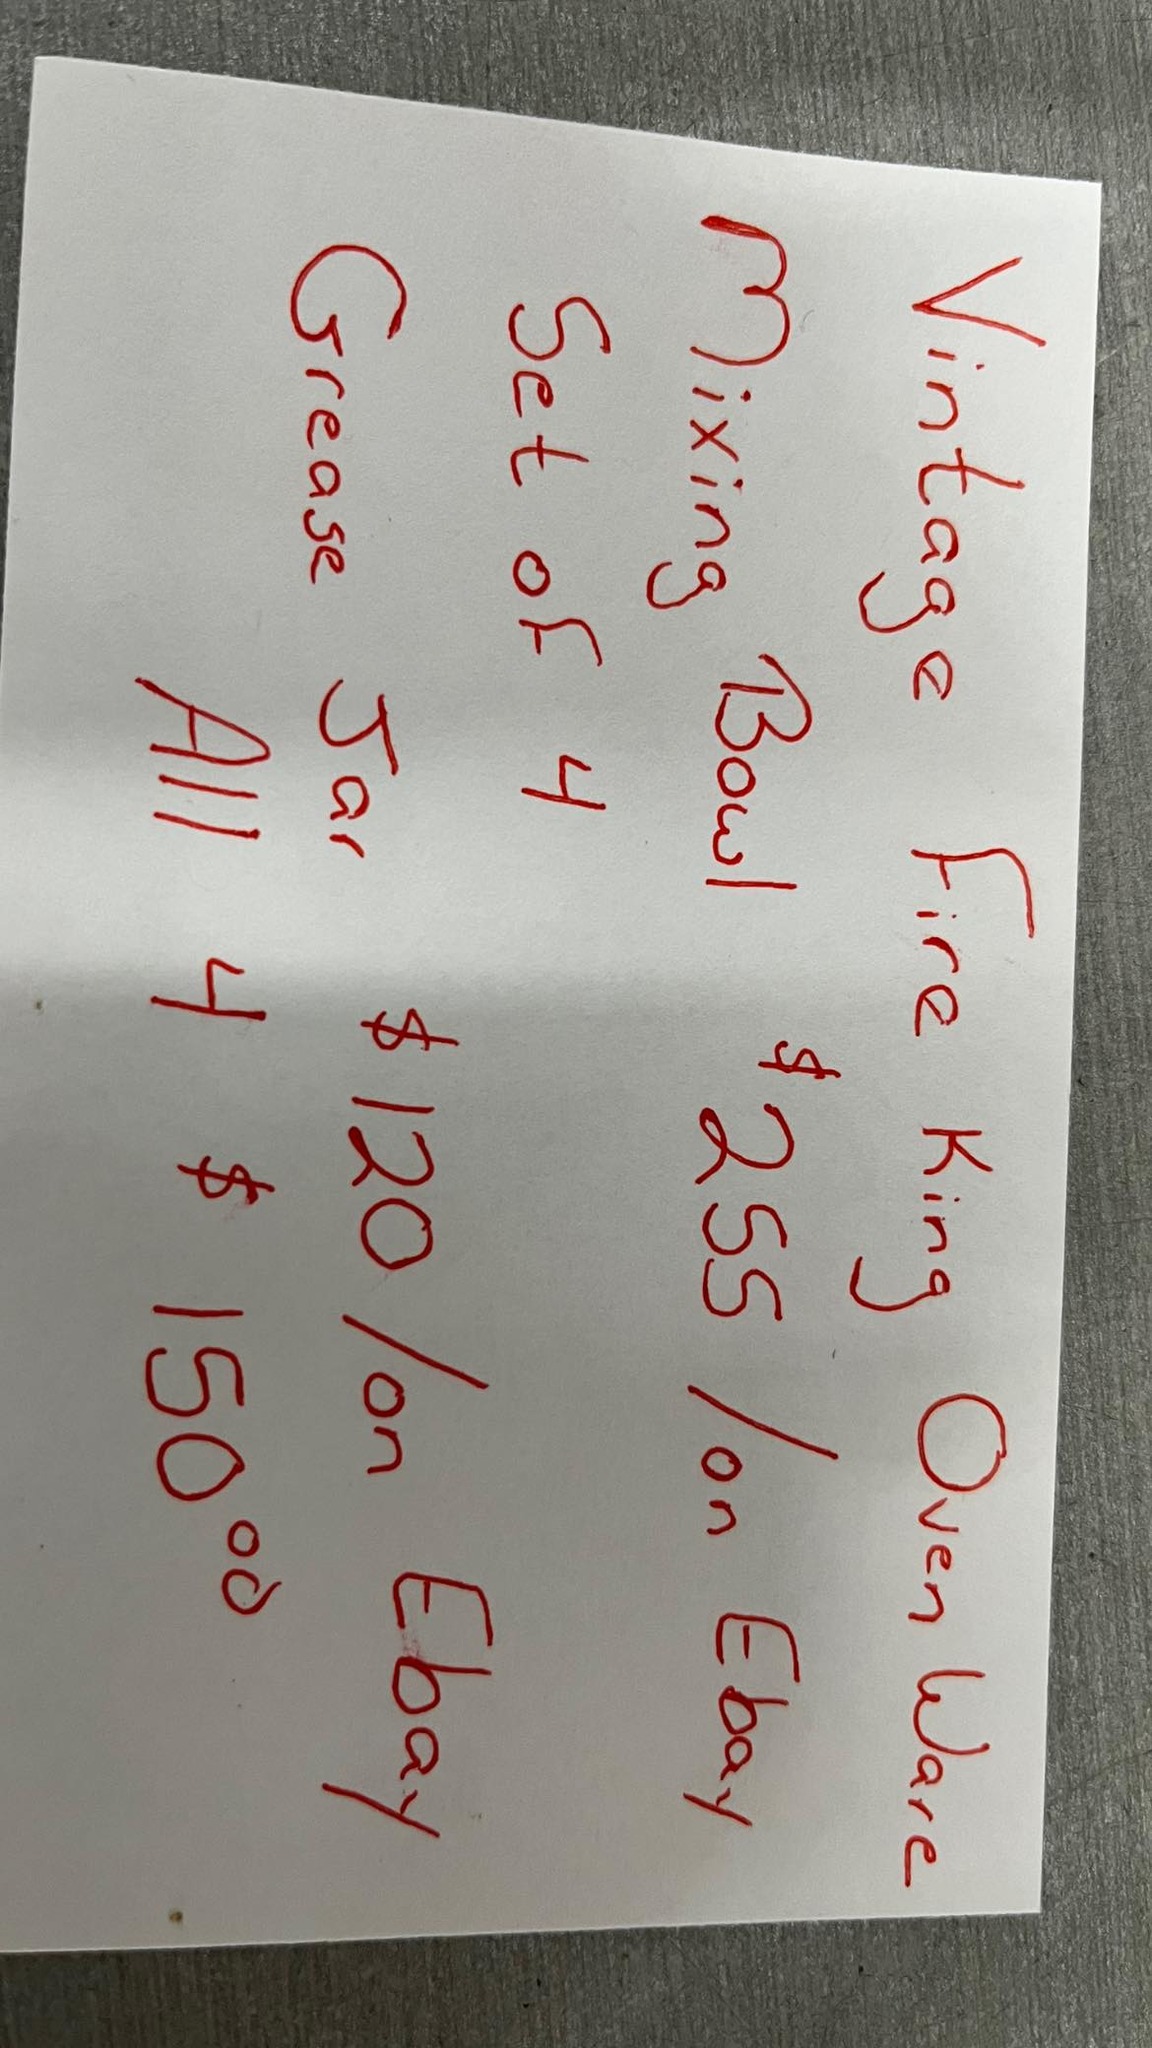 Vintage Fire King Oven Ware
Mixing Bowl $255/on Ebay
Set of 4
Grease Jar $120/on Ebay
All 4 $150⁰⁰